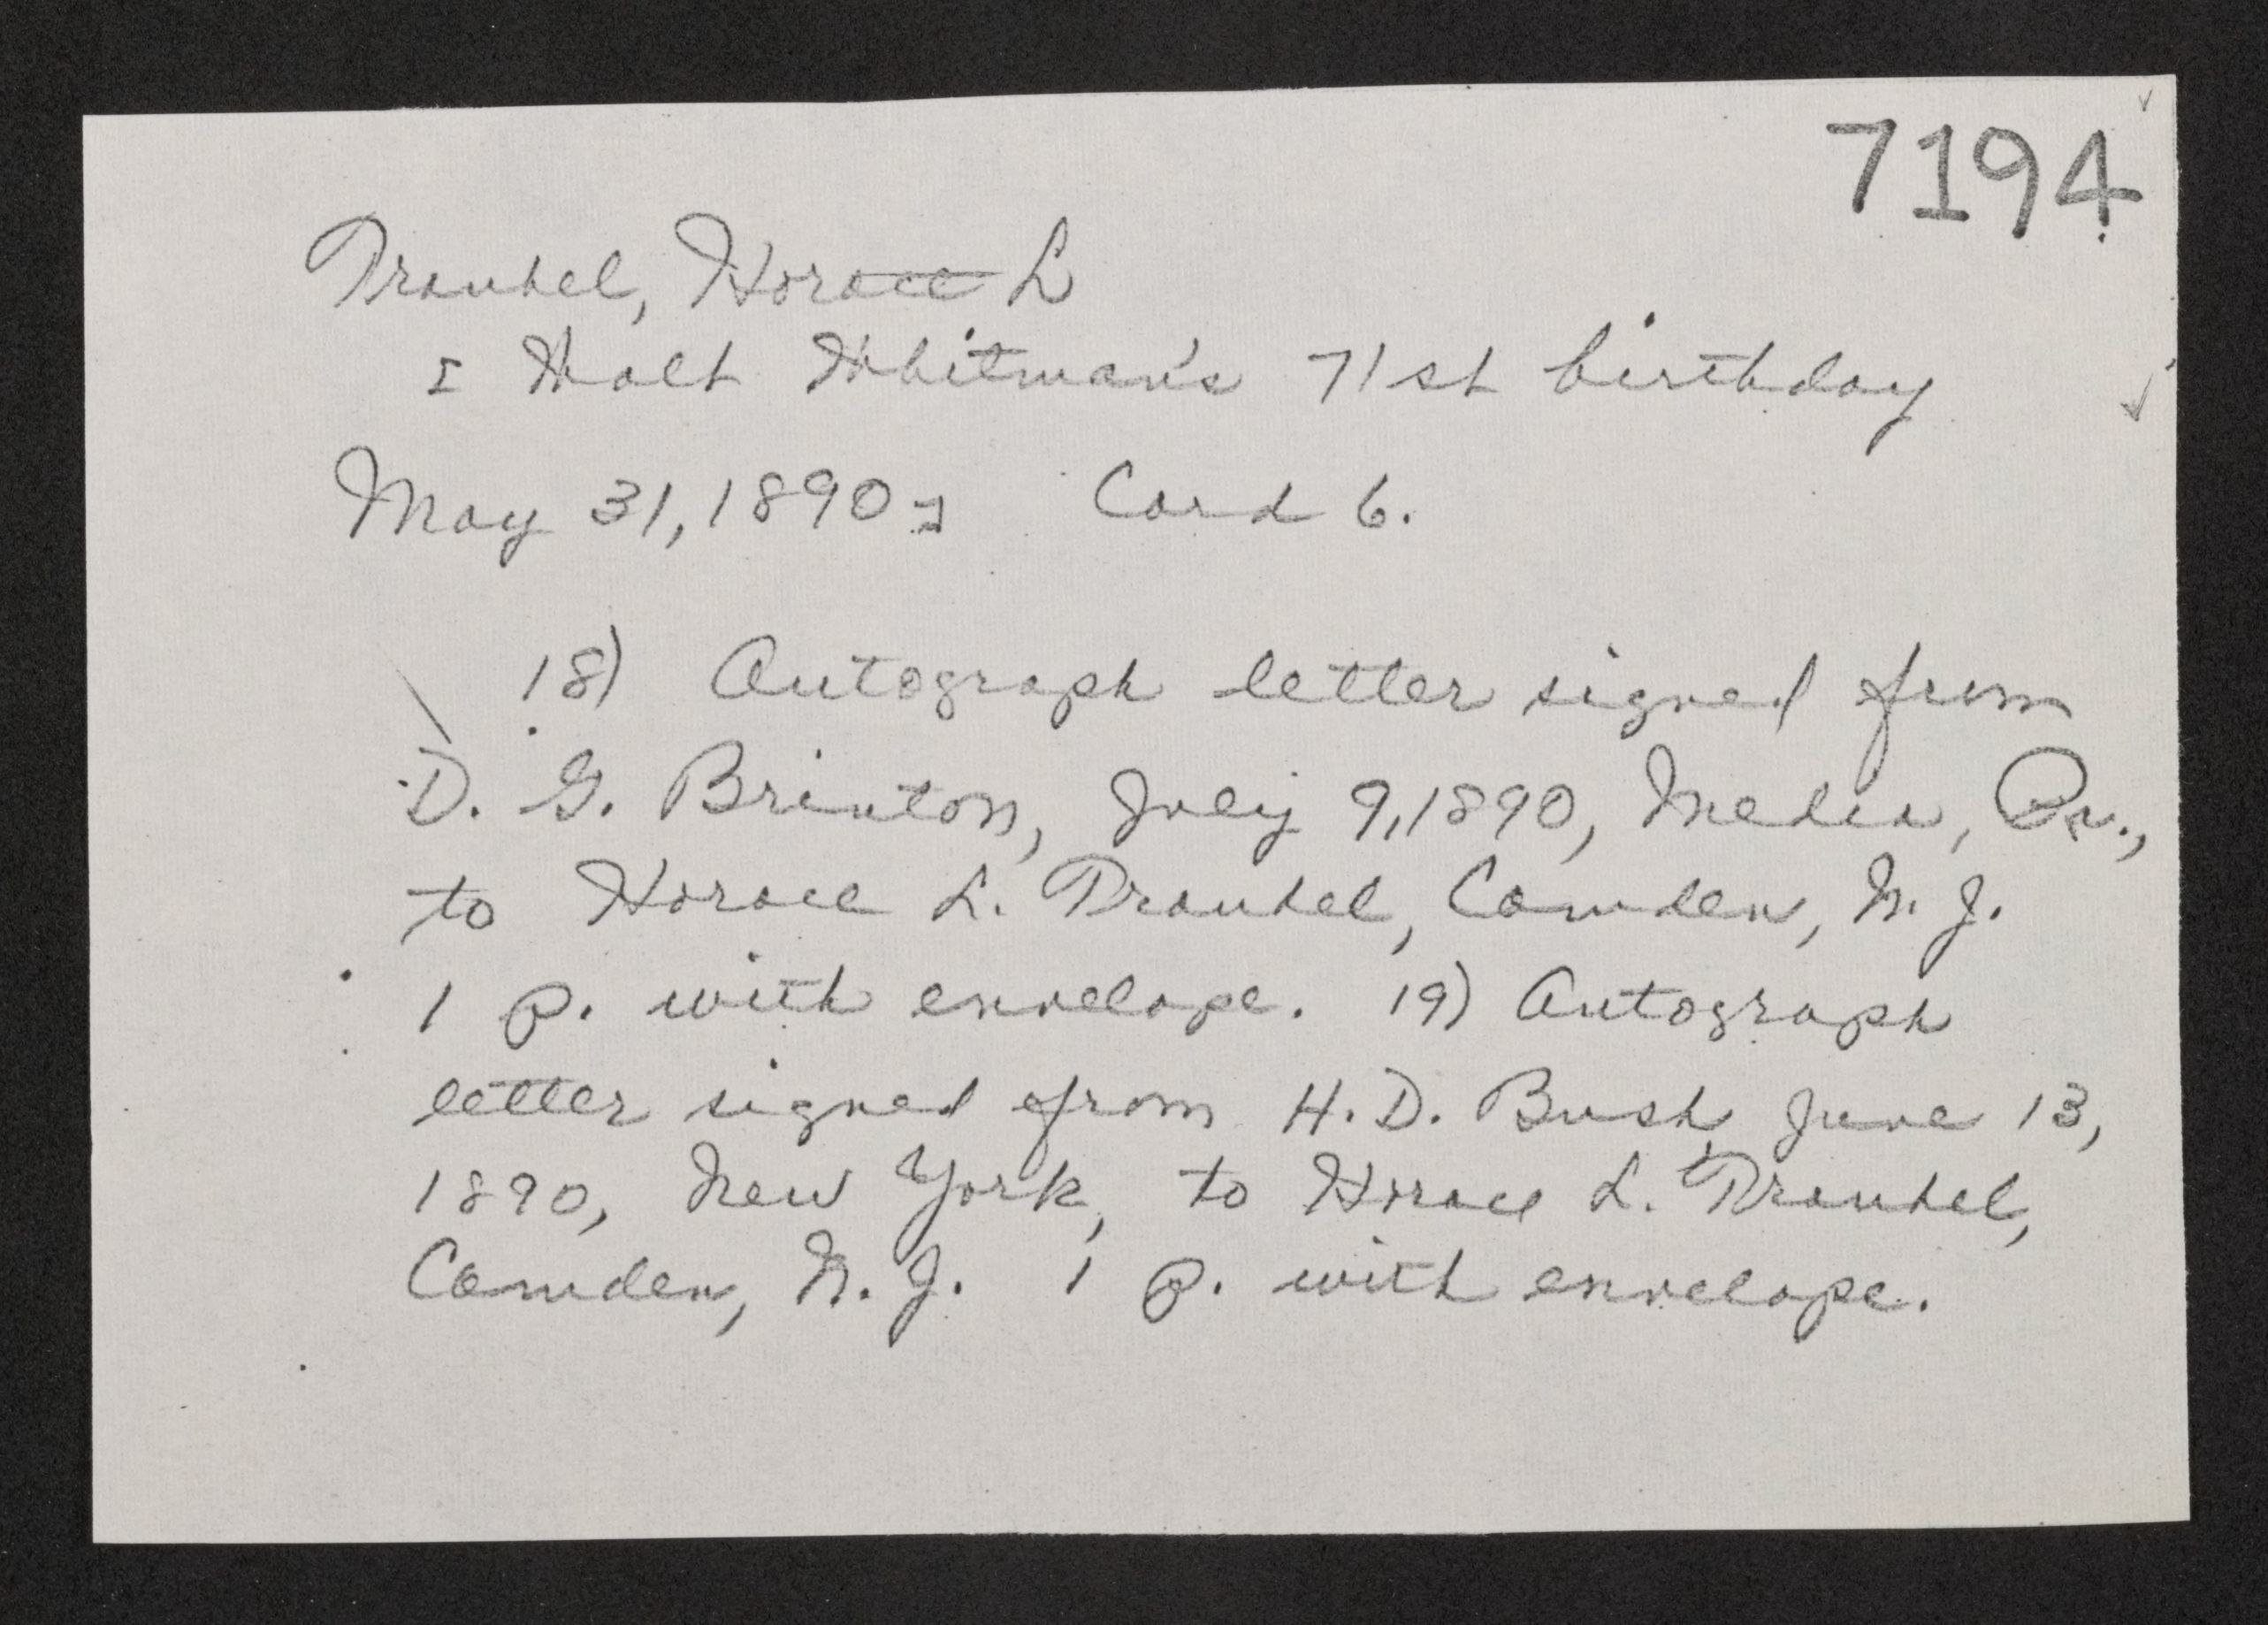 7194
Traubel, Horace L
[Walt Whitman's 71st birthday
May 31, 1890] Card 6.
18) Autograph letter signed from
D. G. Brinton, July 9, 1890, Media, Pa.,
to Horace L. Traubel, Camden, N. J.
1 p. with envelope. 19) Autograph
letter signed from H. D. Bush, June 13,
1890, New York, to Horace L. Traubel,
Camden, N. J. 1 p. with envelope.